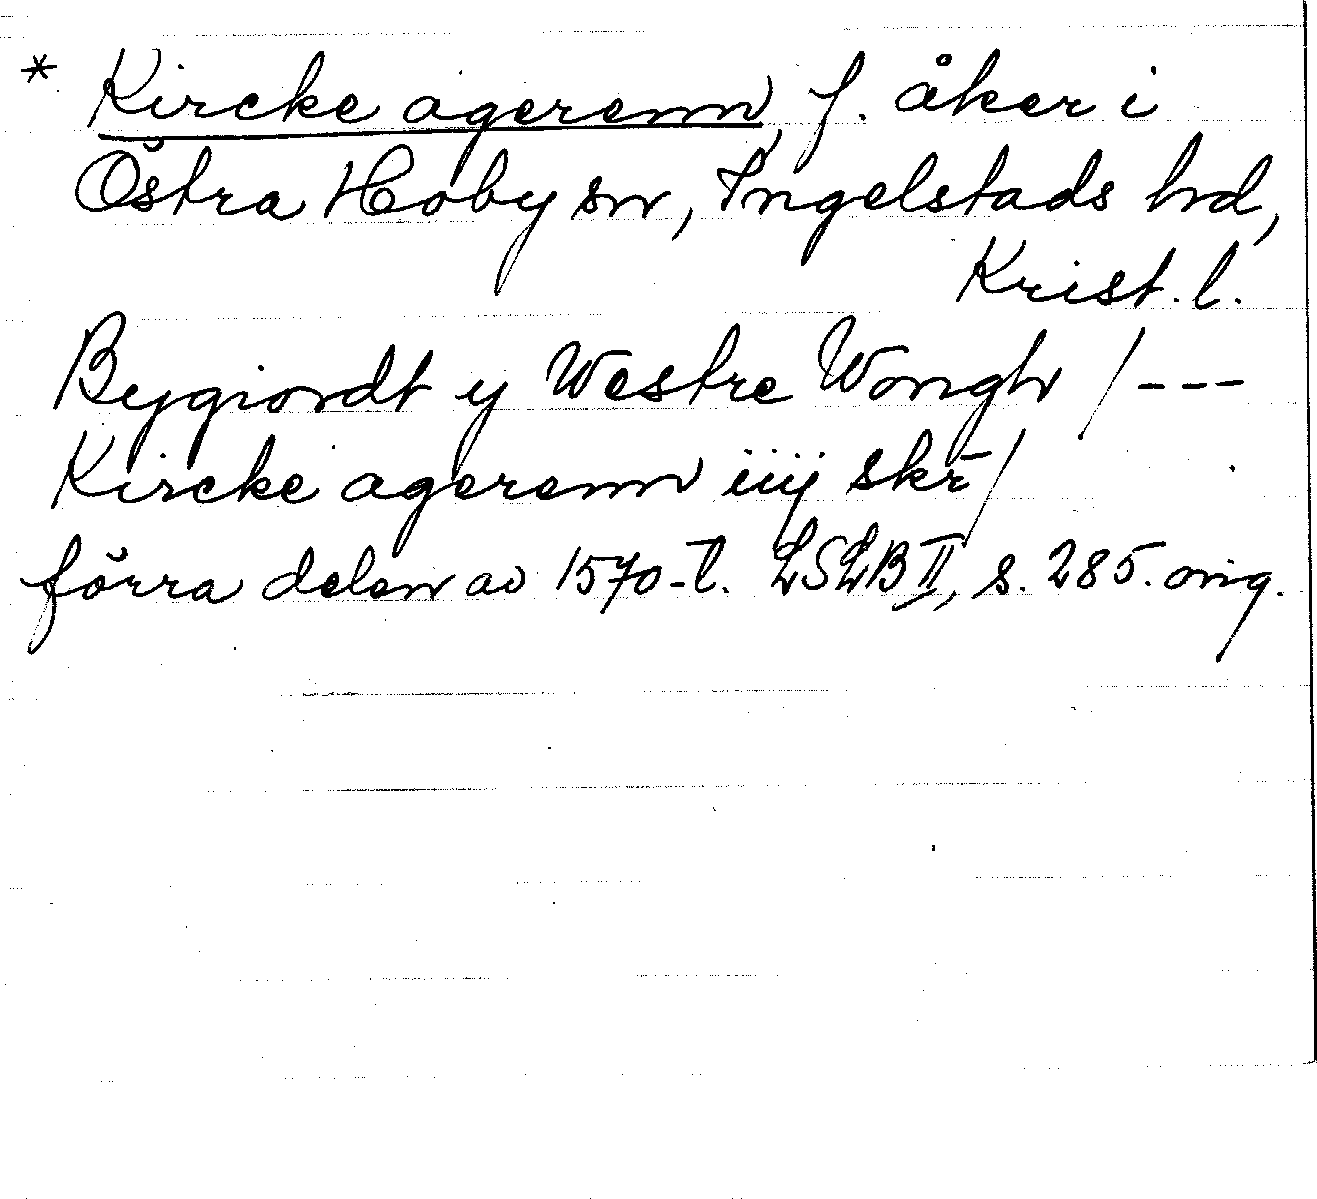 * Kircke agerenn, f. åker i
Östra Hoby sn, Ingelstads hd,
Krist. l.
Bygiordt y Westre Wongh /---
Kircke agerenn iiij skr̄/
förra delen av 1570-t. LSLB II, s. 285. orig.